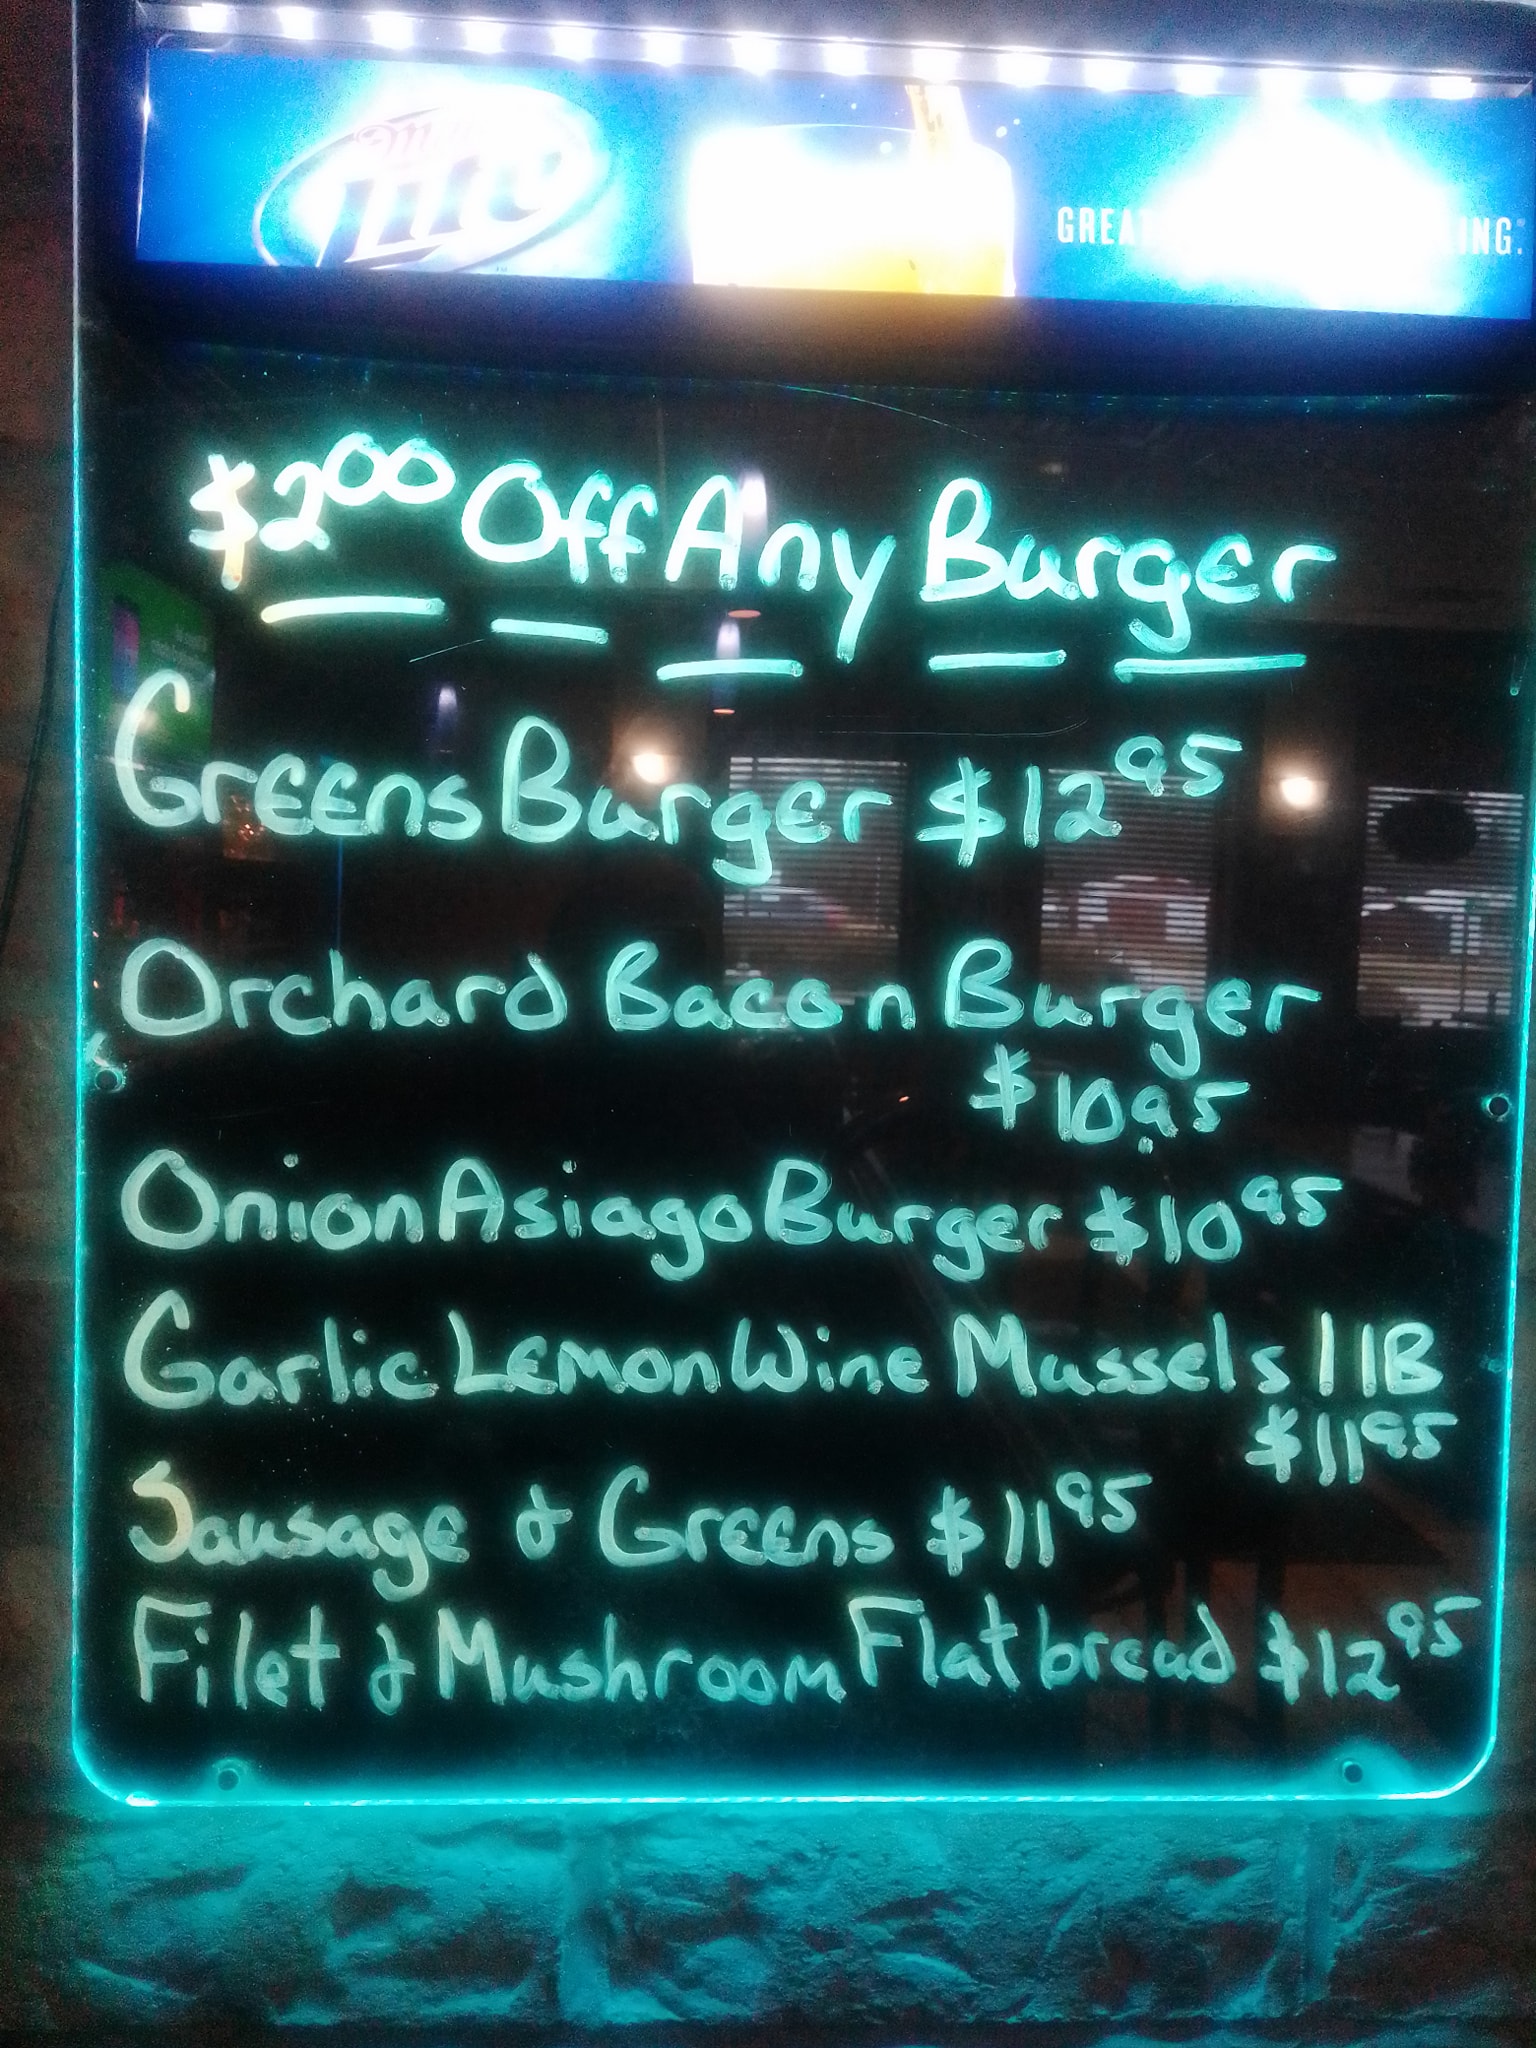 Miller
Lite
GREAT
$2.00 Off Any Burger
Greens Burger $12.95
Orchard Bacon Burger
$10.95
Onion Asiago Burger $10.95
Garlic Lemon Wine Mussels 1 lB
$11.95
Sausage & Greens $11.95
Filet & Mushroom Flatbread $12.95